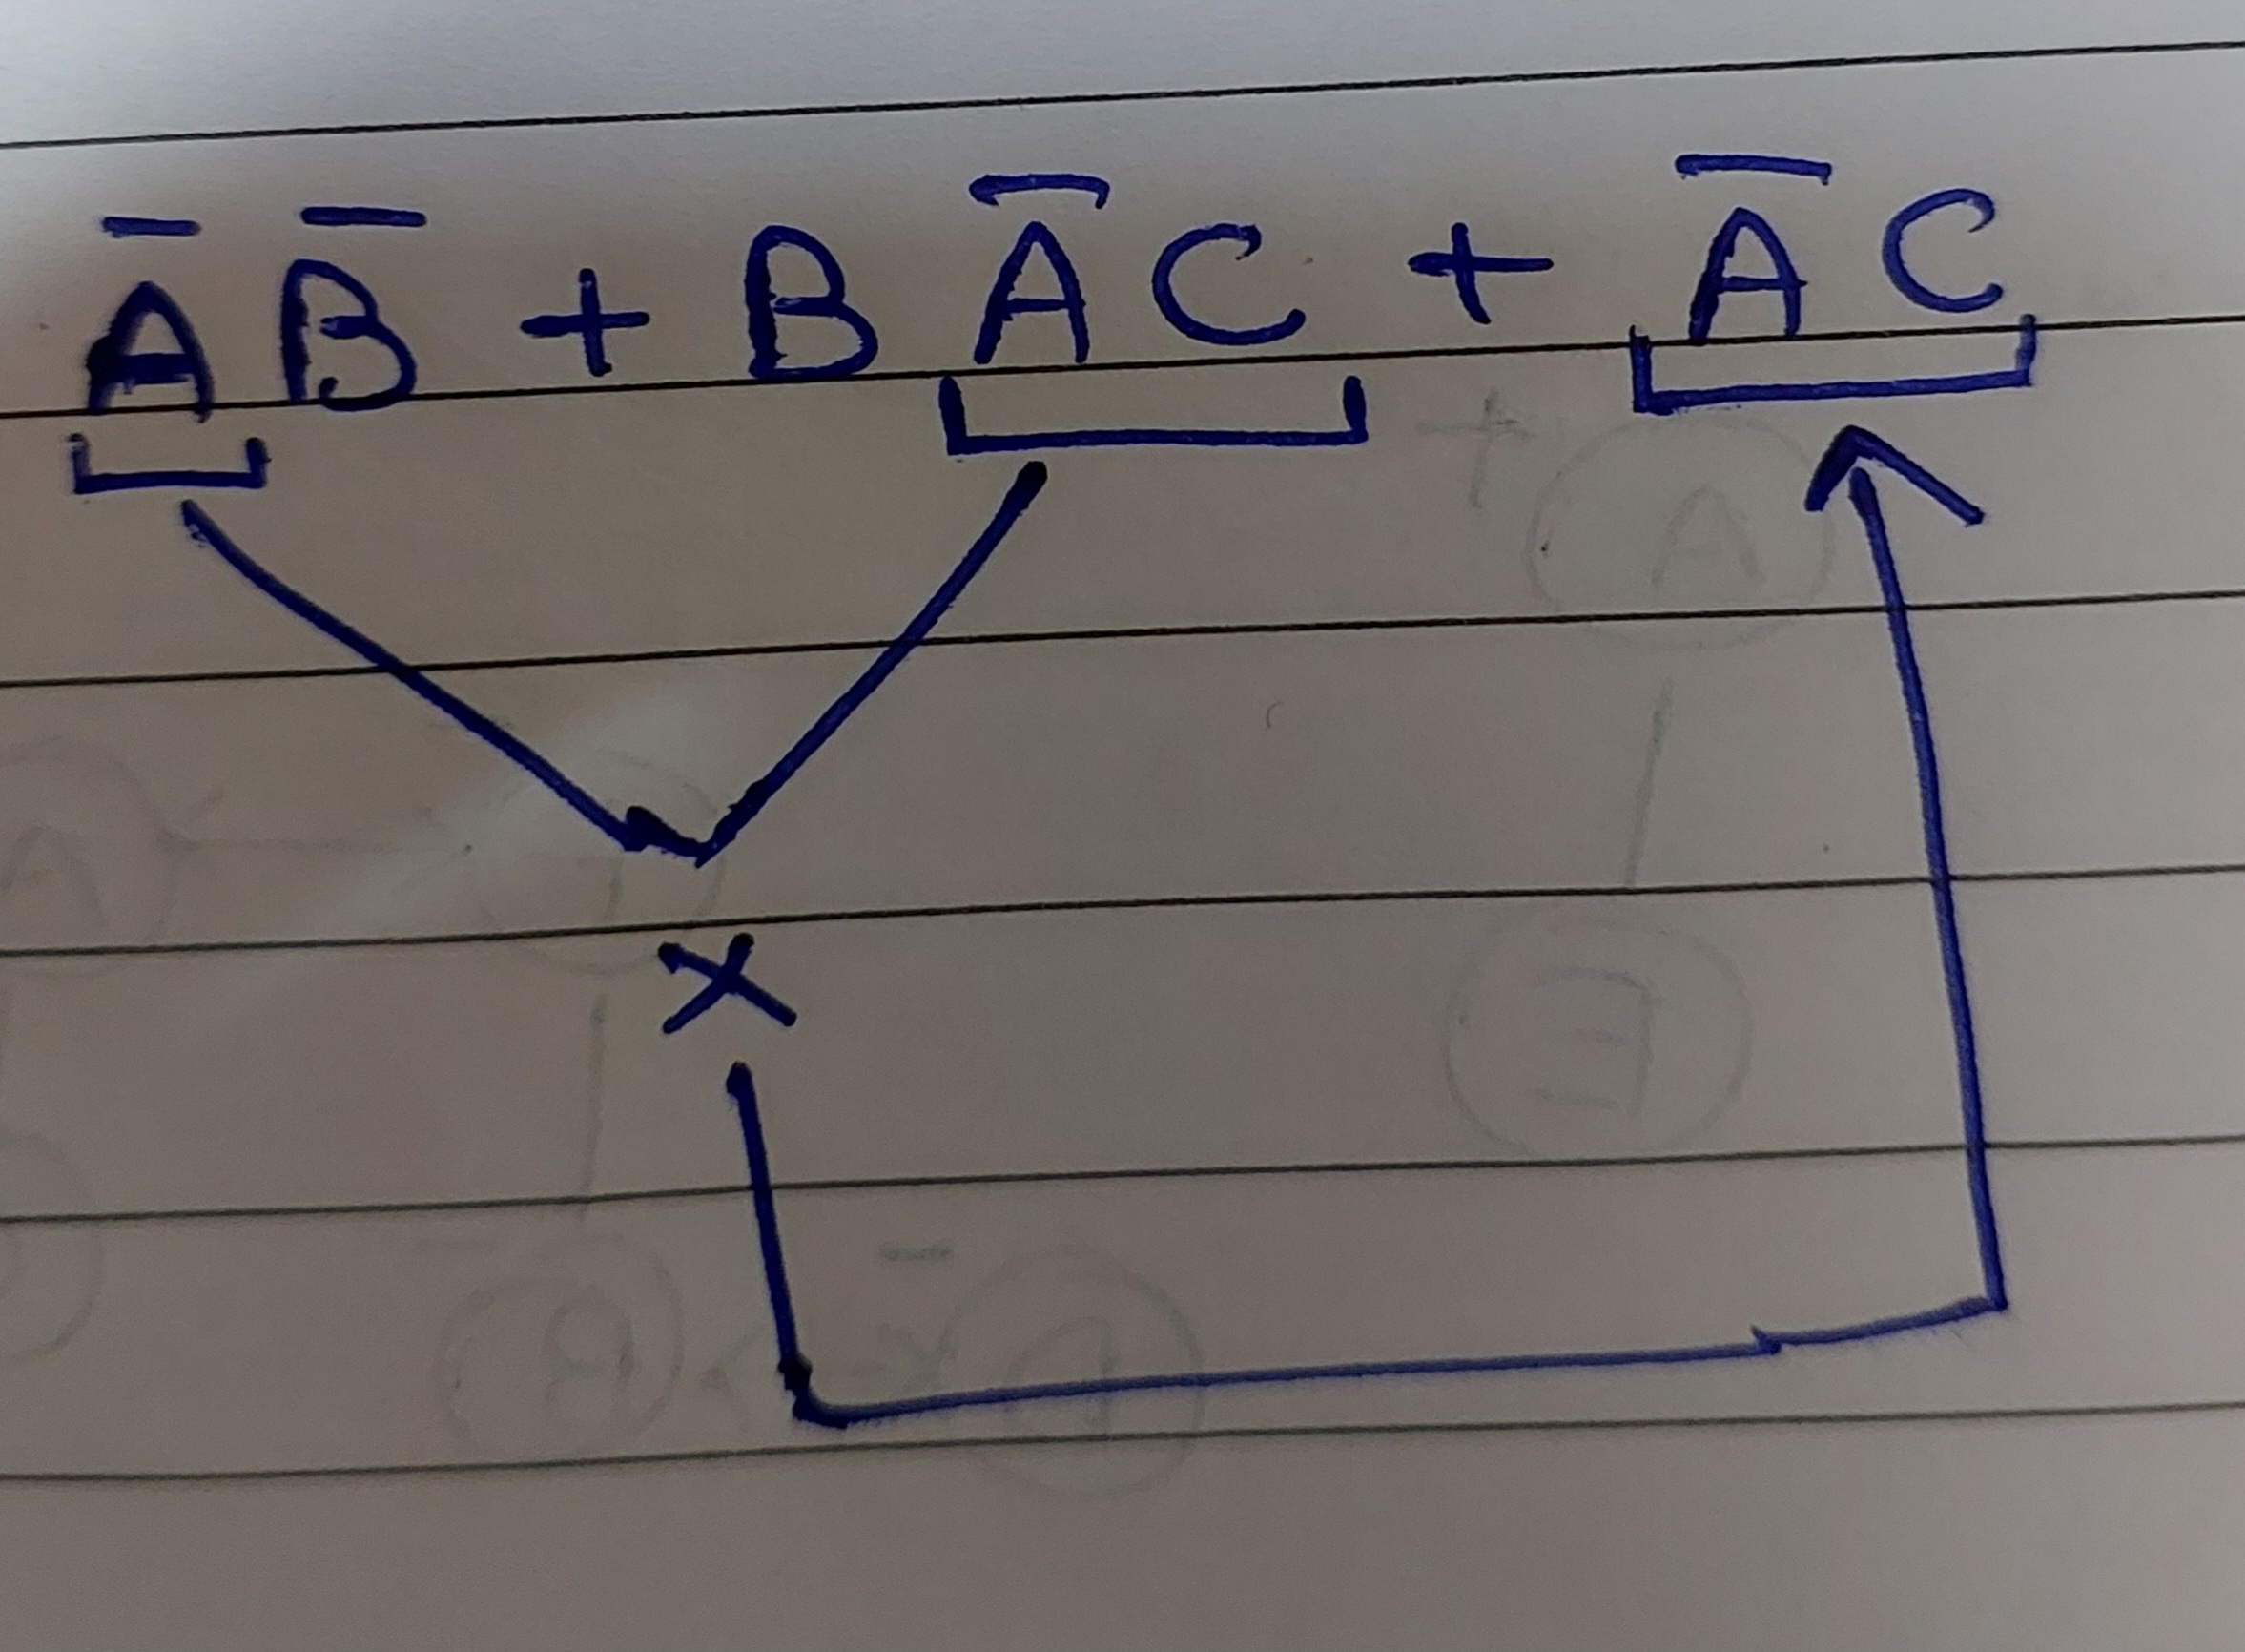 A̅ B̅ + B A̅ C + A̅ C
×